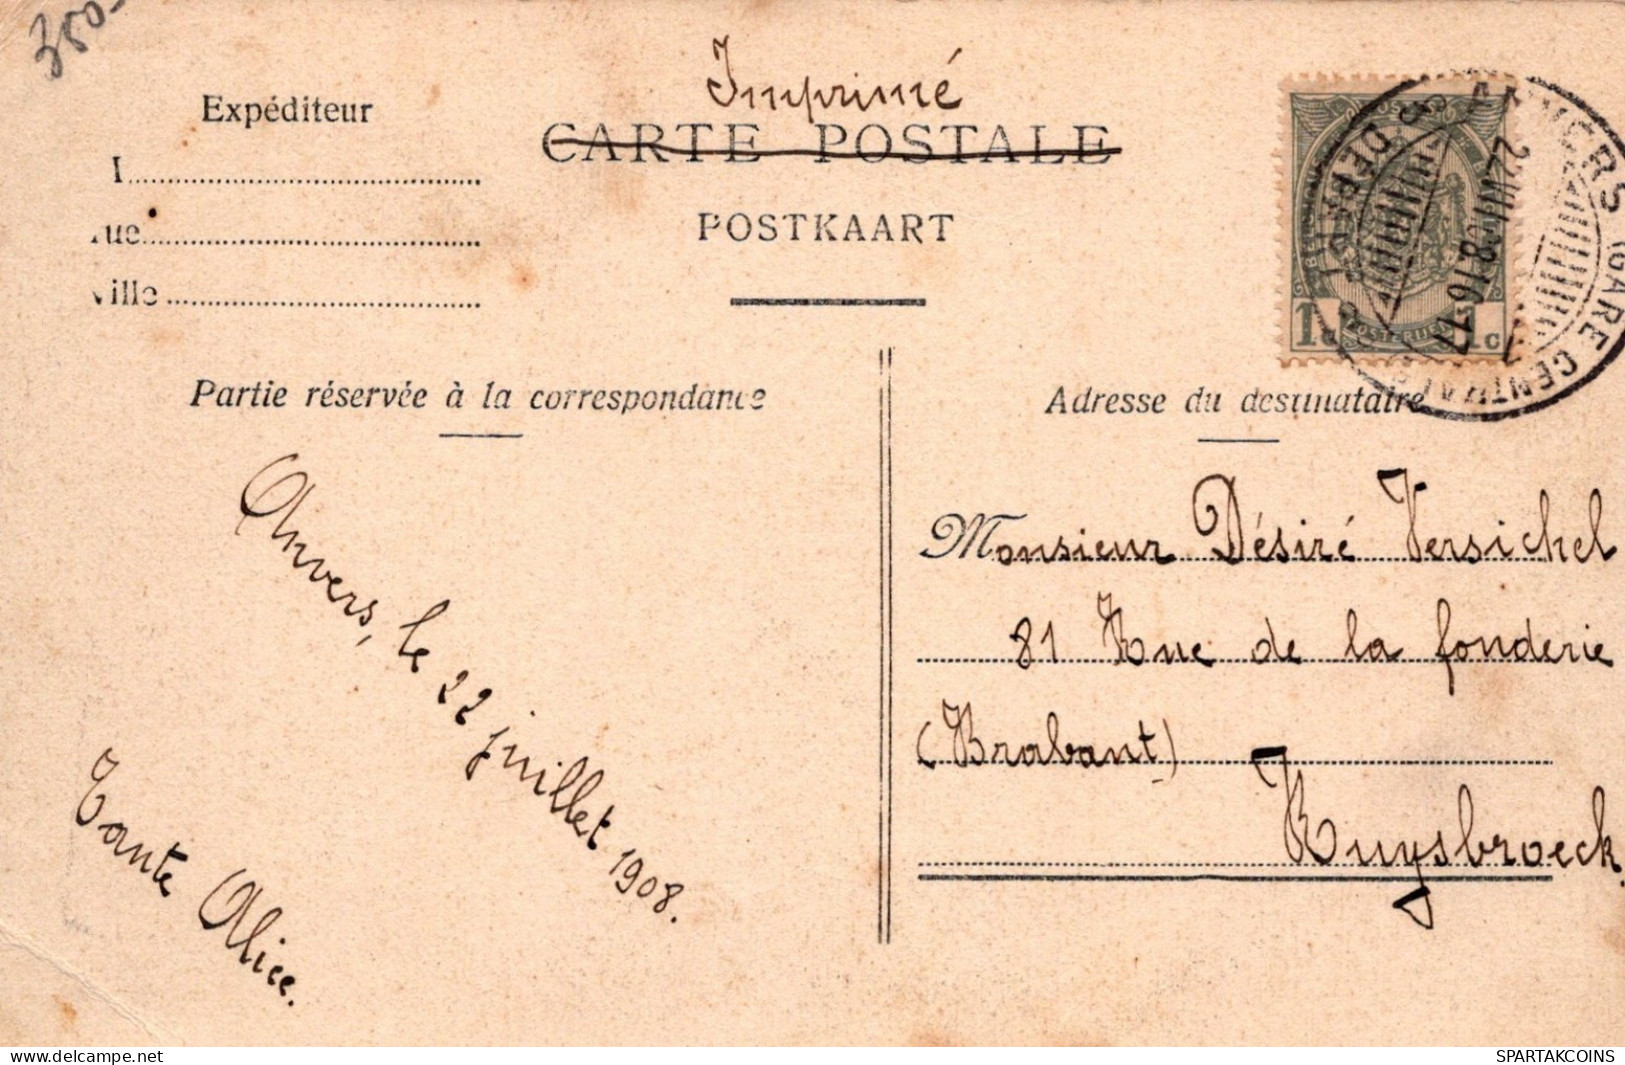 350-
Imprimé
Expéditeur
CARTE POSTALE
POSTKAART
ue
ville
Partie réservée à la correspondance
Adresse du destinataire
ANVERS (GARE CENTRALE)
DEPART
22 VII 08 16-17
1c 1c
POSTERIJEN
Anvers, le 22 juillet 1908.
Tante Alice.
Monsieur Désiré Versichel
81 Rue de la fonderie
(Brabant)
Ruysbroeck.
delcampe.net
SPARTAKCOINS